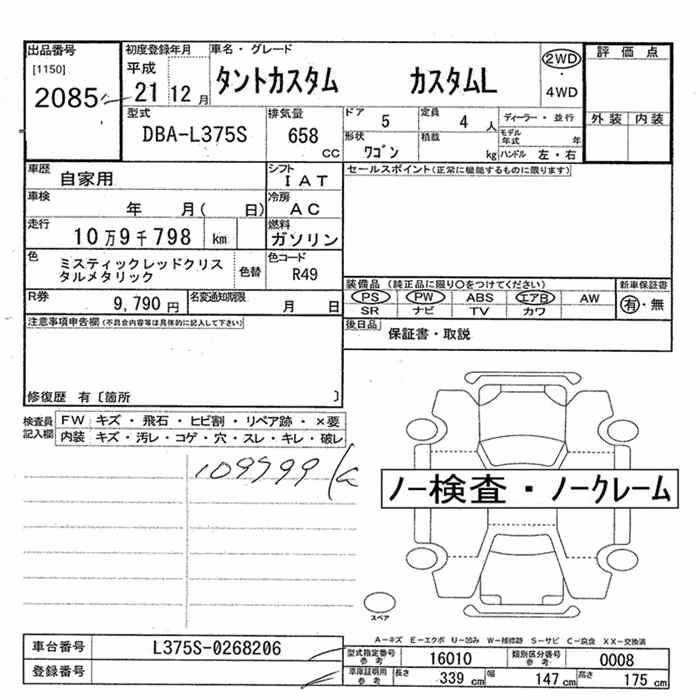 出品番号
[1150]
2085
初度登録年月
平成
21 12 月
車名・グレード
タントカスタム カスタムL
2WD
・
4WD
評価点
外装 内装
型式
DBA-L375S
排気量
658
CC
ドア
5
定員
4 人
ディーラー・並行
モデル
年式 年
形状
ワゴン
積載
kg
ハンドル 左・右
車歴
自家用
シフト
IAT
セールスポイント(正常に機能するものに限ります)
車検
年 月( 日)
冷房
AC
走行
10万9千798 km
燃料
ガソリン
色
ミスティックレッドクリス
タルメタリック
色替
色コード
R49
装備品(純正品に限り○をつけてください)
PS PW ABS エアB AW
SR ナビ TV カワ
新車保証書
有・無
R券
9,790 円
名変通知期限
月 日
後日品
保証書・取説
注意事項申告欄(不具合内容等は具体的に記入して下さい)
修復歴 有〔箇所 〕
検査員
記入欄
FW キズ・飛石・ヒビ割・リペア跡・×要
内装 キズ・汚レ・コゲ・穴・スレ・キレ・破レ
109799
ノー検査・ノークレーム
スペア
A-キズ E-エクボ U-凹み W-補修跡 S-サビ C-腐食 XX-交換済
車台番号
L375S-0268206
登録番号
型式指定番号
参考
16010
類別区分番号
参考
0008
車庫証明用
参考
長さ
339 cm
幅
147 cm
高さ
175 cm